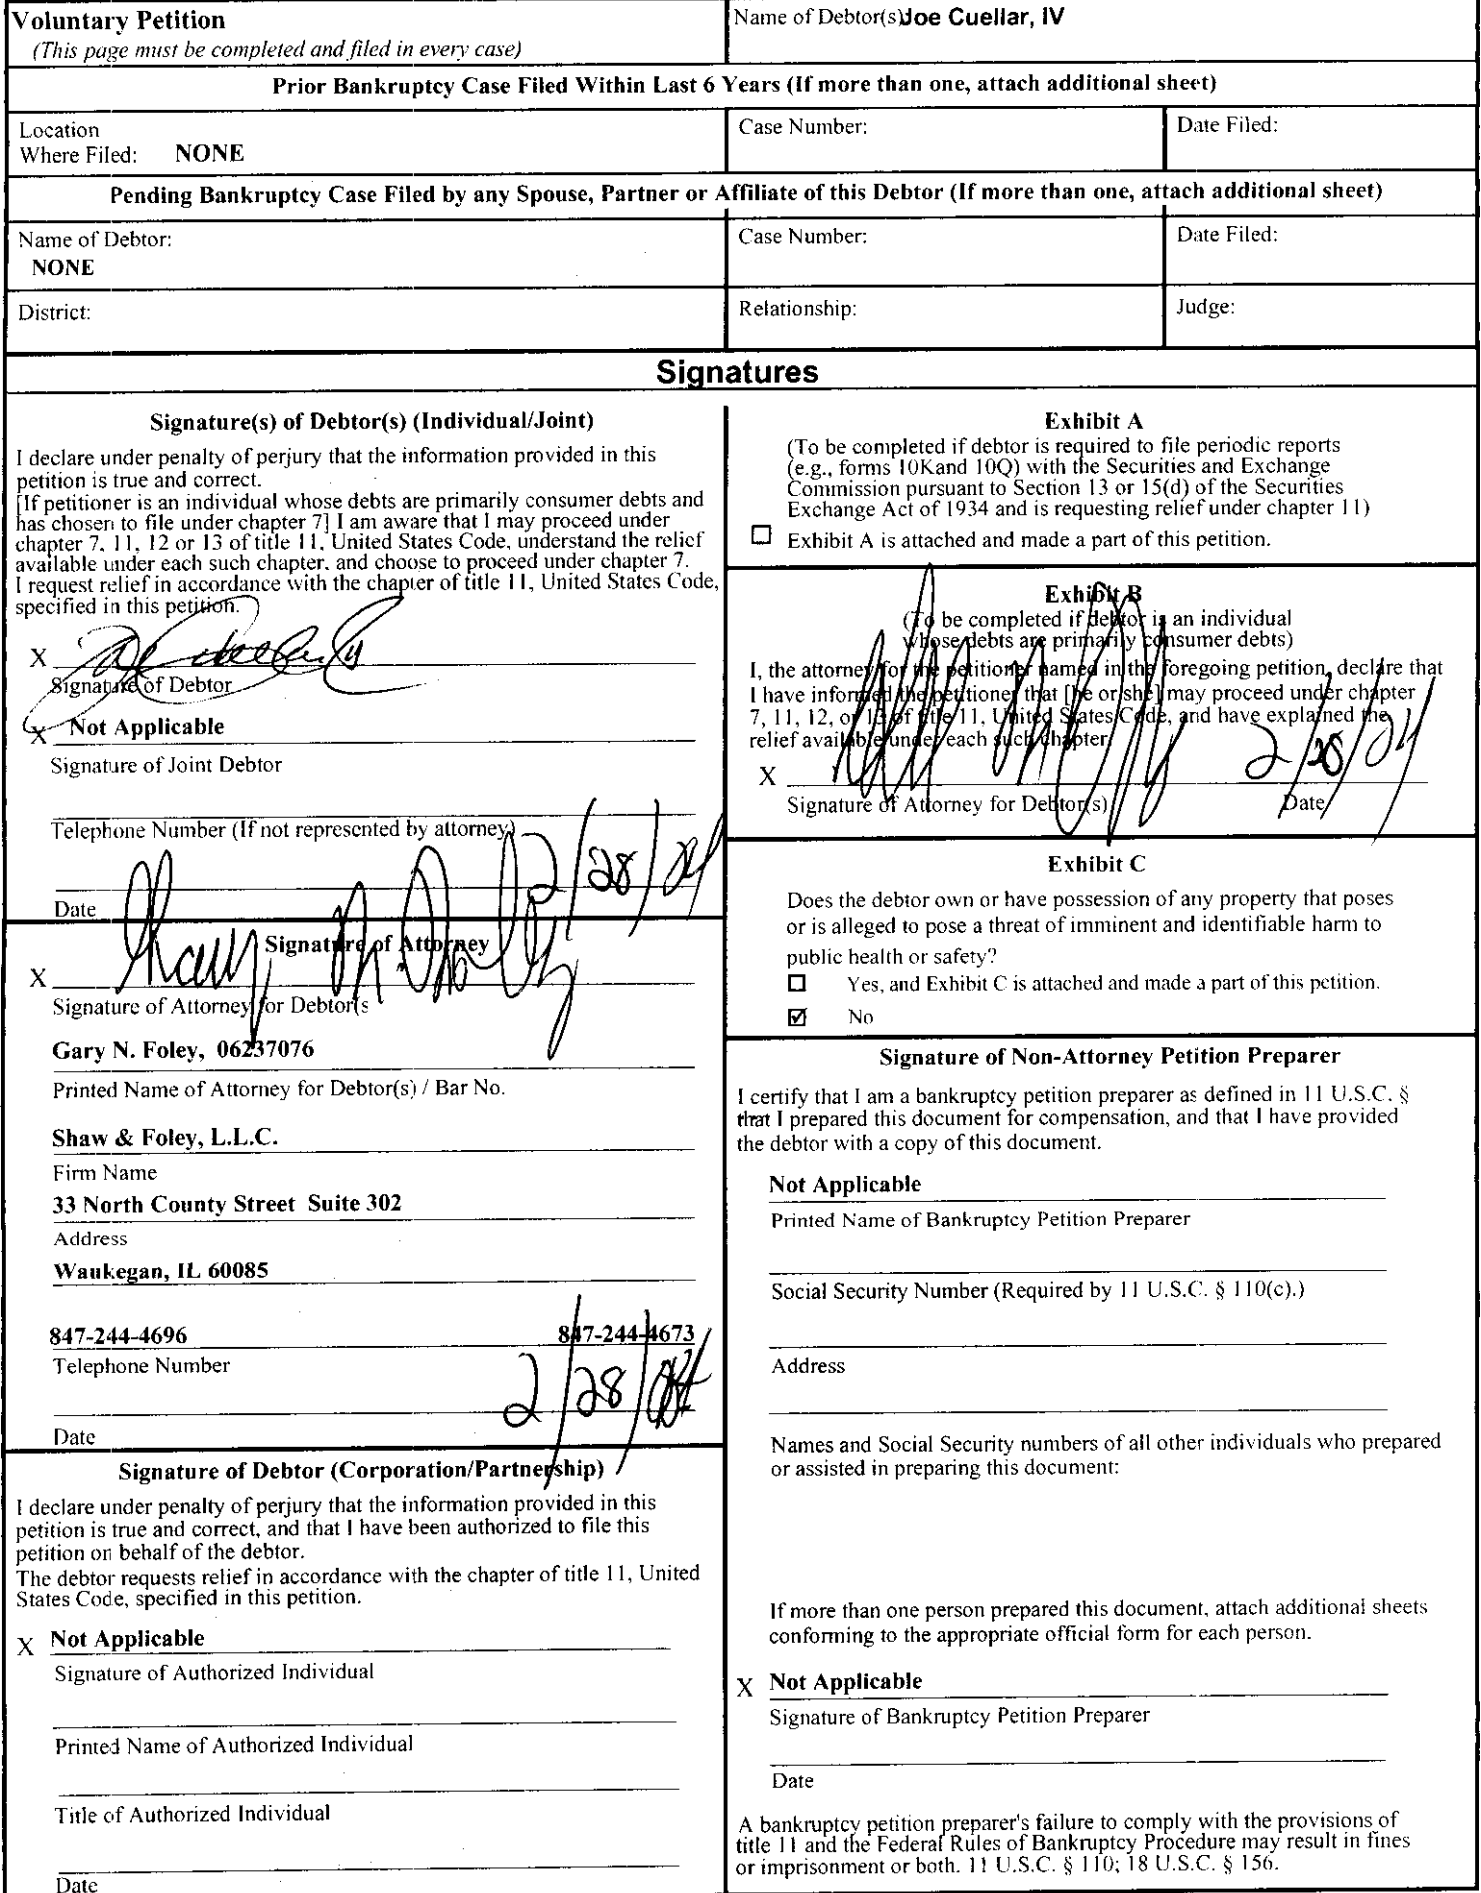 Voluntary Petition
(This page must be completed and filed in every case)
Name of Debtor(s) Joe Cuellar, IV
Prior Bankruptcy Case Filed Within Last 6 Years (If more than one, attach additional sheet)
Location
Where Filed: NONE
Case Number:
Date Filed:
Pending Bankruptcy Case Filed by any Spouse, Partner or Affiliate of this Debtor (If more than one, attach additional sheet)
Name of Debtor:
NONE
Case Number:
Date Filed:
District:
Relationship:
Judge:
Signatures
Signature(s) of Debtor(s) (Individual/Joint)
I declare under penalty of perjury that the information provided in this
petition is true and correct.
[If petitioner is an individual whose debts are primarily consumer debts and
has chosen to file under chapter 7] I am aware that I may proceed under
chapter 7, 11, 12 or 13 of title 11, United States Code, understand the relief
available under each such chapter, and choose to proceed under chapter 7.
I request relief in accordance with the chapter of title 11, United States Code,
specified in this petition.
X
Signature of Debtor
X Not Applicable
Signature of Joint Debtor
Telephone Number (If not represented by attorney)
2/28/04
Date
Signature of Attorney
X
Signature of Attorney for Debtor(s
Gary N. Foley, 06237076
Printed Name of Attorney for Debtor(s) / Bar No.
Shaw & Foley, L.L.C.
Firm Name
33 North County Street Suite 302
Address
Waukegan, IL 60085
847-244-4696 847-244-4673
Telephone Number
2/28/04
Date
Signature of Debtor (Corporation/Partnership)
I declare under penalty of perjury that the information provided in this
petition is true and correct, and that I have been authorized to file this
petition on behalf of the debtor.
The debtor requests relief in accordance with the chapter of title 11, United
States Code, specified in this petition.
X Not Applicable
Signature of Authorized Individual
Printed Name of Authorized Individual
Title of Authorized Individual
Date
Exhibit A
(To be completed if debtor is required to file periodic reports
(e.g., forms 10Kand 10Q) with the Securities and Exchange
Commission pursuant to Section 13 or 15(d) of the Securities
Exchange Act of 1934 and is requesting relief under chapter 11)
☐ Exhibit A is attached and made a part of this petition.
Exhibit B
(To be completed if debtor is an individual
whose debts are primarily consumer debts)
I, the attorney for the petitioner named in the foregoing petition, declare that
I have informed the petitioner that [he or she] may proceed under chapter
7, 11, 12, or 13 of title 11, United States Code, and have explained the
relief available under each such chapter.
X 2/28/04
Signature of Attorney for Debtor(s) Date
Exhibit C
Does the debtor own or have possession of any property that poses
or is alleged to pose a threat of imminent and identifiable harm to
public health or safety?
☐ Yes, and Exhibit C is attached and made a part of this petition.
☑ No
Signature of Non-Attorney Petition Preparer
I certify that I am a bankruptcy petition preparer as defined in 11 U.S.C. §
that I prepared this document for compensation, and that I have provided
the debtor with a copy of this document.
Not Applicable
Printed Name of Bankruptcy Petition Preparer
Social Security Number (Required by 11 U.S.C. § 110(c).)
Address
Names and Social Security numbers of all other individuals who prepared
or assisted in preparing this document:
If more than one person prepared this document, attach additional sheets
conforming to the appropriate official form for each person.
X Not Applicable
Signature of Bankruptcy Petition Preparer
Date
A bankruptcy petition preparer's failure to comply with the provisions of
title 11 and the Federal Rules of Bankruptcy Procedure may result in fines
or imprisonment or both. 11 U.S.C. § 110; 18 U.S.C. § 156.